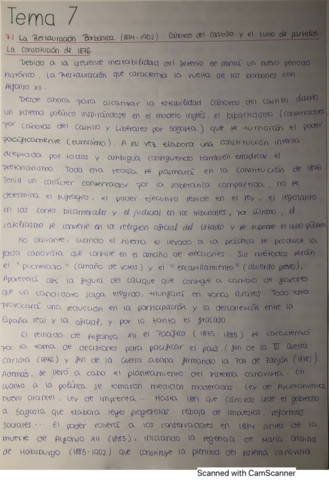 Tema 7
7.1 La Restauración Borbónica (1874-1902): Cánovas del Castillo y el turno de partidos
La Constitución de 1876
Debido a la creciente inestabilidad del sexenio se abrirá un nuevo período
histórico, la Restauración que caracteriza la vuelta de los borbones con
Alfonso XII.
Desde ahora para alcanzar la estabilidad Cánovas del Castillo diseñó
un sistema político inspirándose en el modelo inglés, el bipartidista (conservadores
por Cánovas del Castillo y liberales por Sagasta) que se turnarán el poder
pacíficamente (turnismo). A su vez elabora una constitución interna
aceptada por todos y ambigua consiguiendo también erradicar el
pretorianismo. Toda esta teoría se plasmará en la constitución de 1876.
Tenía un carácter conservador por la soberanía compartida, no se
determina el sufragio, el poder ejecutivo reside en el rey, el legislativo
en las cortes bicamerales y el judicial en los tribunales, por último, el
catolicismo se convierte en la religión oficial del estado y se suprime el culto público.
No obstante, cuando el sistema es llevado a la práctica se produce la
farsa canovista que consiste en el amaño de elecciones. Sus métodos serán
el "pucherazo" (amaño de votos) y el "encasillamiento" (acuerdo previo),
Aparecerá así la figura del cacique que consigue a cambio de favores
que un candidato salga elegido, en zonas rurales. Todo esto
provocará una reducción en la participación y la desconexión entre la
España real y la oficial, y por lo tanto el fracaso.
El reinado de Alfonso XII el Pacífico (1875-1885) se caracterizó
por la toma de decisiones para pacificar el país: fin de la III guerra
carlista (1876) y fin de la guerra cubana firmando la Paz de Zanjón (1878).
Además, se llevó a cabo el planteamiento del sistema canovista. En
cuanto a la política se tomaron medidas moderadas: ley de Ayuntamientos,
nuevo arancel, ley de imprenta... Hasta 1881 que Cánovas cede el gobierno
a Sagasta que elabora leyes progresistas: rebaja de impuestos, reformas
sociales... El poder volverá a los conservadores en 1884 antes de la
muerte de Alfonso XII (1885), iniciando la regencia de María Cristina
de Habsburgo (1885-1902) que constituye la plenitud del sistema canovista
Scanned with CamScanner